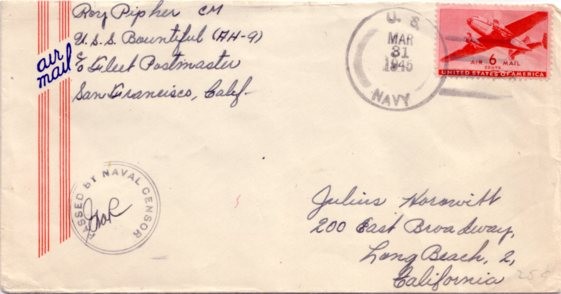 Roy Pipher CM
U.S.S. Bountiful (AH-9)
c/o Fleet Postmaster
San Francisco, Calif.
air
mail
U. S.
MAR
31
1945
NAVY
AIR 6 MAIL
CENTS
UNITED STATES OF AMERICA
PASSED BY NAVAL CENSOR
Julius Horowitt
200 East Broadway,
Long Beach, 2,
California